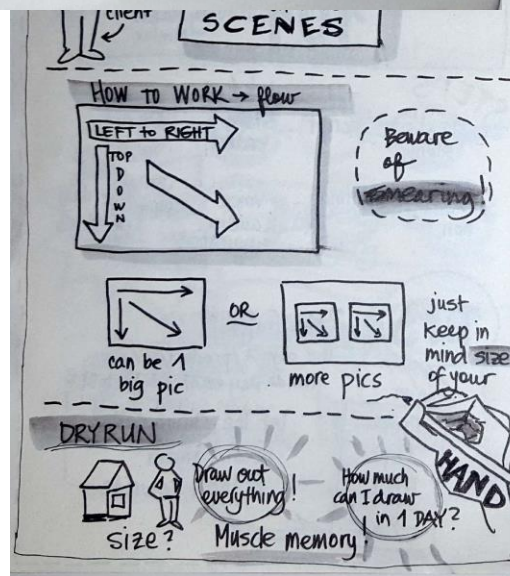 client
SCENES
HOW TO WORK → flow
LEFT to RIGHT
TOP
DOWN
Beware
of
smearing!
can be 1
big pic
OR
more pics
just
keep in
mind size
of your
HAND
DRYRUN
size?
Draw out
everything!
Muscle memory!
How much
can I draw
in 1 DAY?